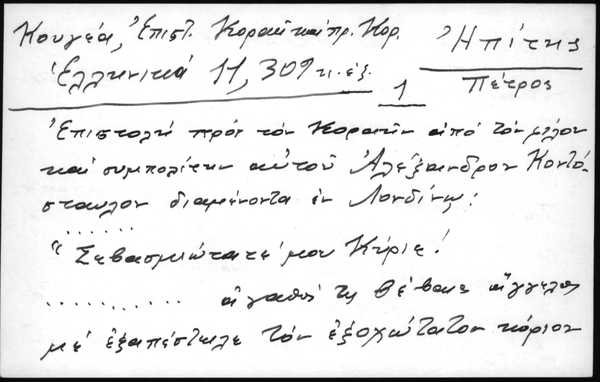 Κουγέα, Ἐπιστ. Κοραῆ καὶ πρ. Κορ.
Ἑλληνικά 11, 309 κ. ἑξ.
Ἠπίτης
Πέτρος
1
Ἐπιστολή πρός τόν Κοραήν ἀπό τόν φίλον
καί συμπολίτην αὐτοῦ Ἀλέξανδρον Κοντό-
σταυλον διαμένοντα ἐν Λονδίνῳ:
......
"Σεβασμιώτατέ μου Κύριε!
......... ἀγαθός τῇ θέβαις ἄγγελος
μέ ἐξαπέστειλε τόν ἐξοχώτατον κύριον